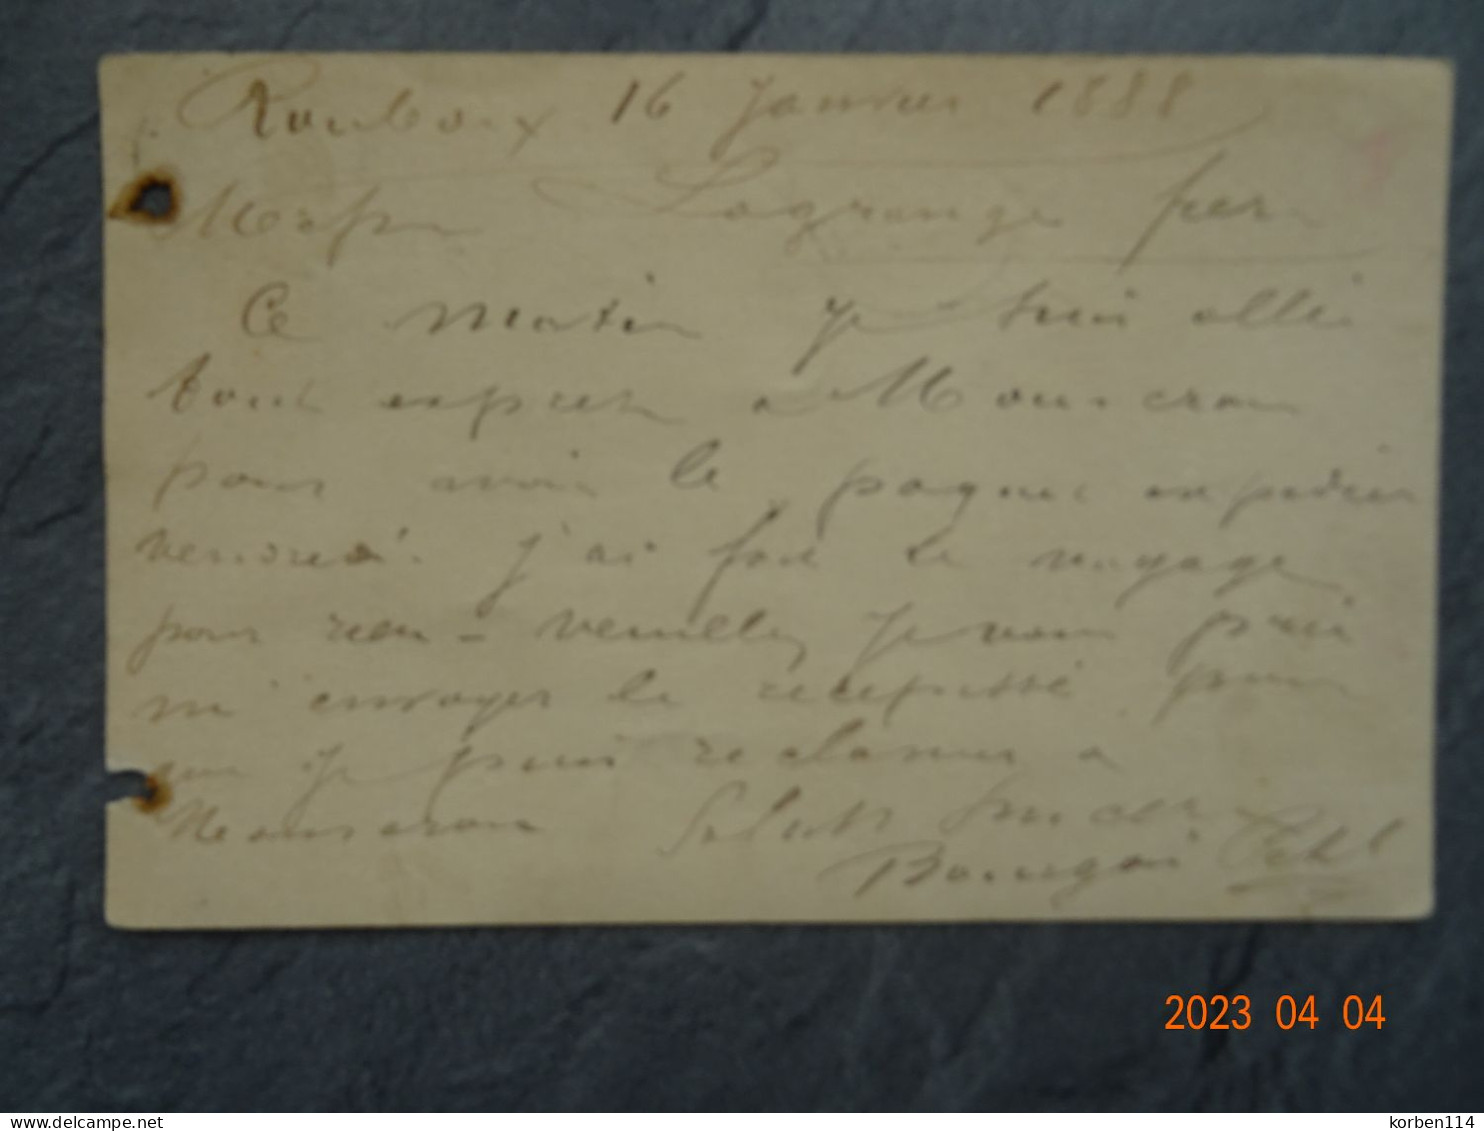 Roubaix 16 Janvier 1888
Lagrange
Ce matin je suis allé
tout exprès a Mouscron
pour avoir le paquet expedier
vendredi. j'ai fait le voyage
pour rien – veuillez je vous prie
m'envoyer le recepissé pour
que je puis reclamer a
Mouscron Saluts
2023 04 04
delcampe.net korben114